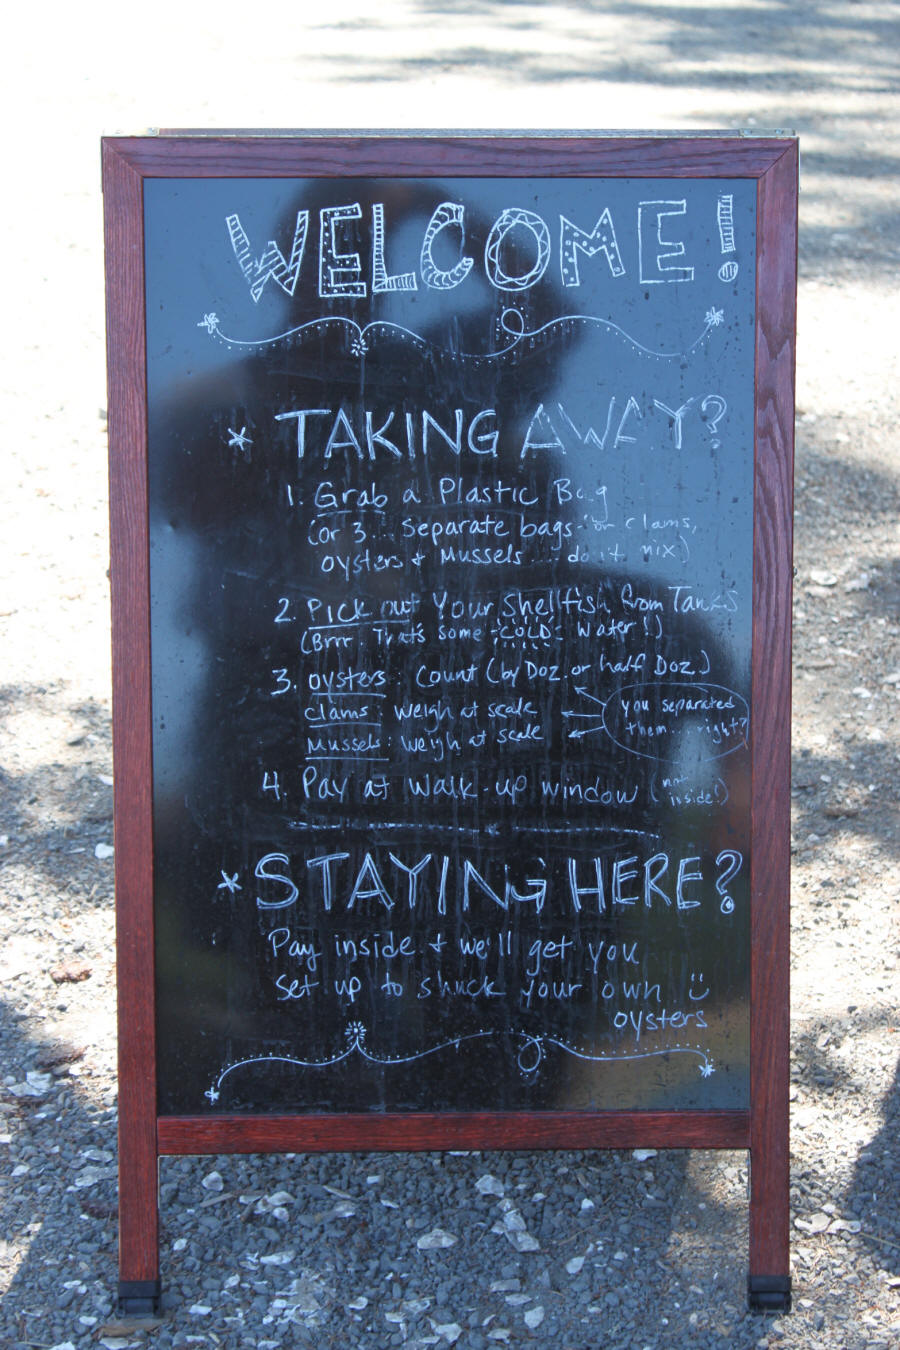 WELCOME!
* TAKING AWAY?
1. Grab a Plastic Bag
(or 3... Separate bags for clams,
oysters + Mussels... don't mix)
2. Pick out Your Shellfish from Tanks
(Brrr. That's some COLD Water!)
3. oysters: Count (by Doz. or half Doz.)
clams: weigh at scale
Mussels: weigh at scale
you separated
them... right?
4. Pay at Walk-up window (not
inside!)
* STAYING HERE?
Pay inside + we'll get you
set up to shuck your own
oysters